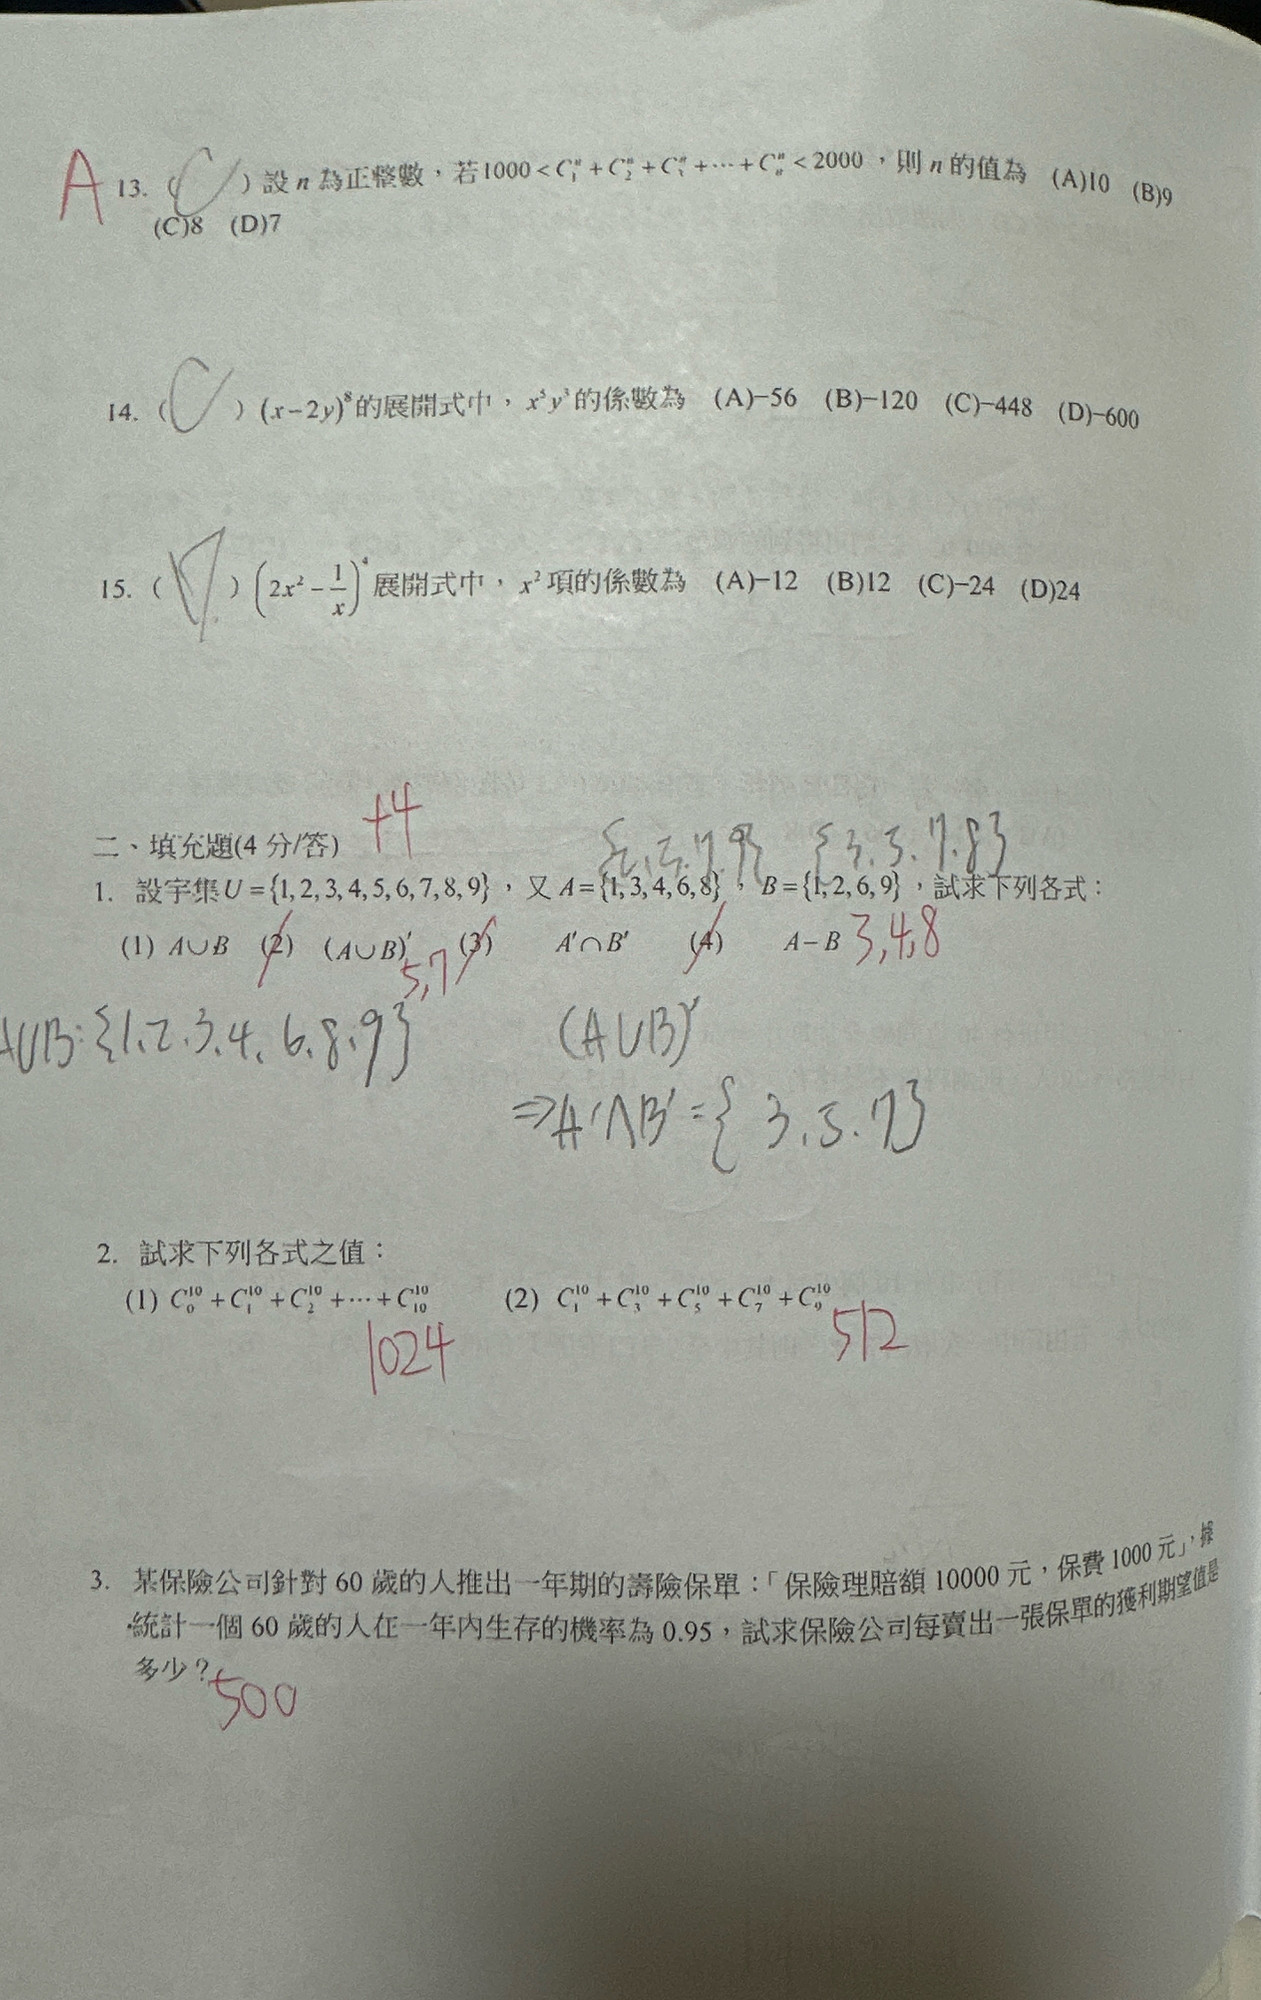 A 13. ( C ) 設 n 為正整數，若1000 < C₁ⁿ + C₂ⁿ + C₃ⁿ + ⋯ + Cₙⁿ < 2000，則 n 的值為 (A)10 (B)9
(C)8 (D)7
14. ( C ) (x−2y)⁸的展開式中，x⁵y³的係數為 (A)−56 (B)−120 (C)−448 (D)−600
15. ( D ) (2x² − 1/x)⁴ 展開式中，x² 項的係數為 (A)−12 (B)12 (C)−24 (D)24
二、填充題(4 分/答) +4
{2,5,7,9} {3.5.7.8}
1. 設宇集U = {1,2,3,4,5,6,7,8,9}，又 A = {1,3,4,6,8}，B = {1,2,6,9}，試求下列各式：
(1) A∪B (2) (A∪B)′ 5,7 (3) A′∩B′ (4) A−B 3,4,8
A∪B: {1.2.3.4.6.8.9}
(A∪B)′
⇒A′∩B′ = {3.5.7}
2. 試求下列各式之值：
(1) C₀¹⁰ + C₁¹⁰ + C₂¹⁰ + ⋯ + C₁₀¹⁰ (2) C₁¹⁰ + C₃¹⁰ + C₅¹⁰ + C₇¹⁰ + C₉¹⁰
1024 512
3. 某保險公司針對 60 歲的人推出一年期的壽險保單：「保險理賠額 10000 元，保費 1000 元」，據
統計一個 60 歲的人在一年內生存的機率為 0.95，試求保險公司每賣出一張保單的獲利期望值是
多少？ 500